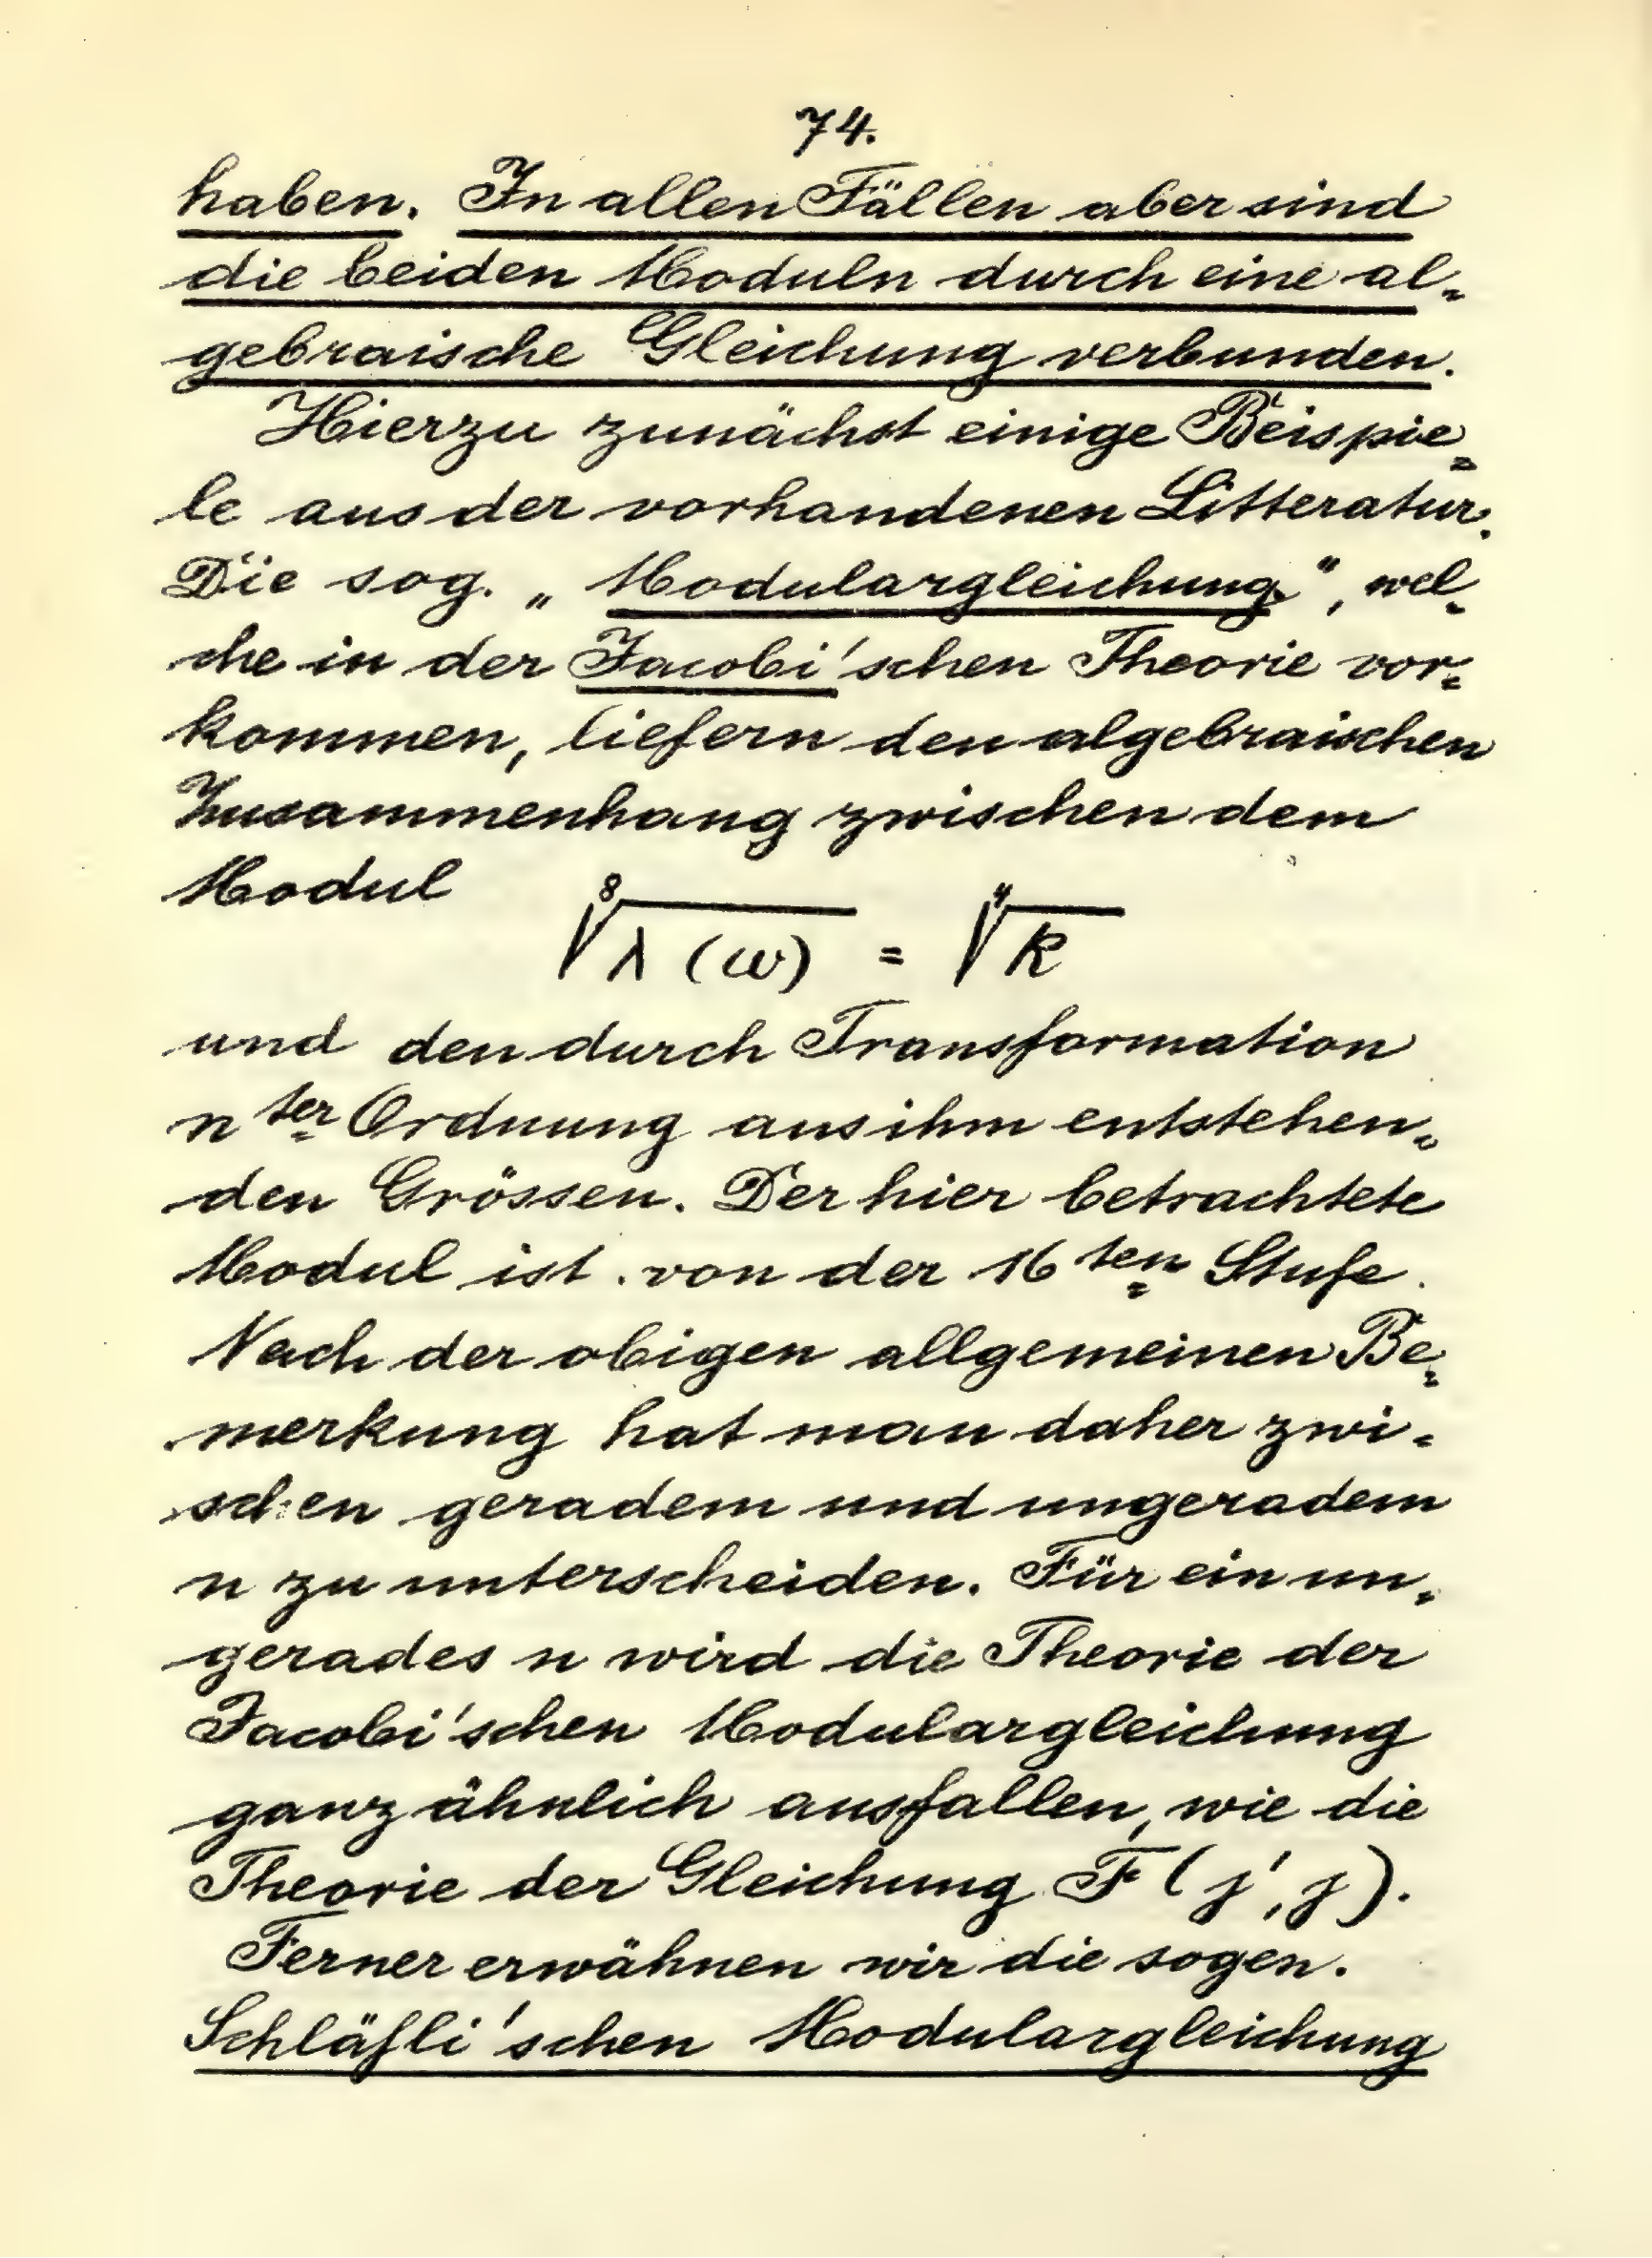 74.
haben. In allen Fällen aber sind
die beiden Moduln durch eine al=
gebraische Gleichung verbunden.
Hierzu zunächst einige Beispie=
le aus der vorhandenen Litteratur.
Die sog. „Modulargleichung", wel=
che in der Jacobi'schen Theorie vor=
kommen, liefern den algebraischen
Zusammenhang zwischen dem
Modul
\sqrt[8]{λ(ω)} = \sqrt[4]{k}
und den durch Transformation
n ter Ordnung aus ihm entstehen=
den Grössen. Der hier betrachtete
Modul ist von der 16 ten Stufe.
Nach der obigen allgemeinen Be=
merkung hat man daher zwi=
schen geradem und ungeradem
n zu unterscheiden. Für ein un=
gerades n wird die Theorie der
Jacobi'schen Modulargleichung
ganz ähnlich ausfallen, wie die
Theorie der Gleichung F(j', j).
Ferner erwähnen wir die sogen.
Schläfli'schen Modulargleichung